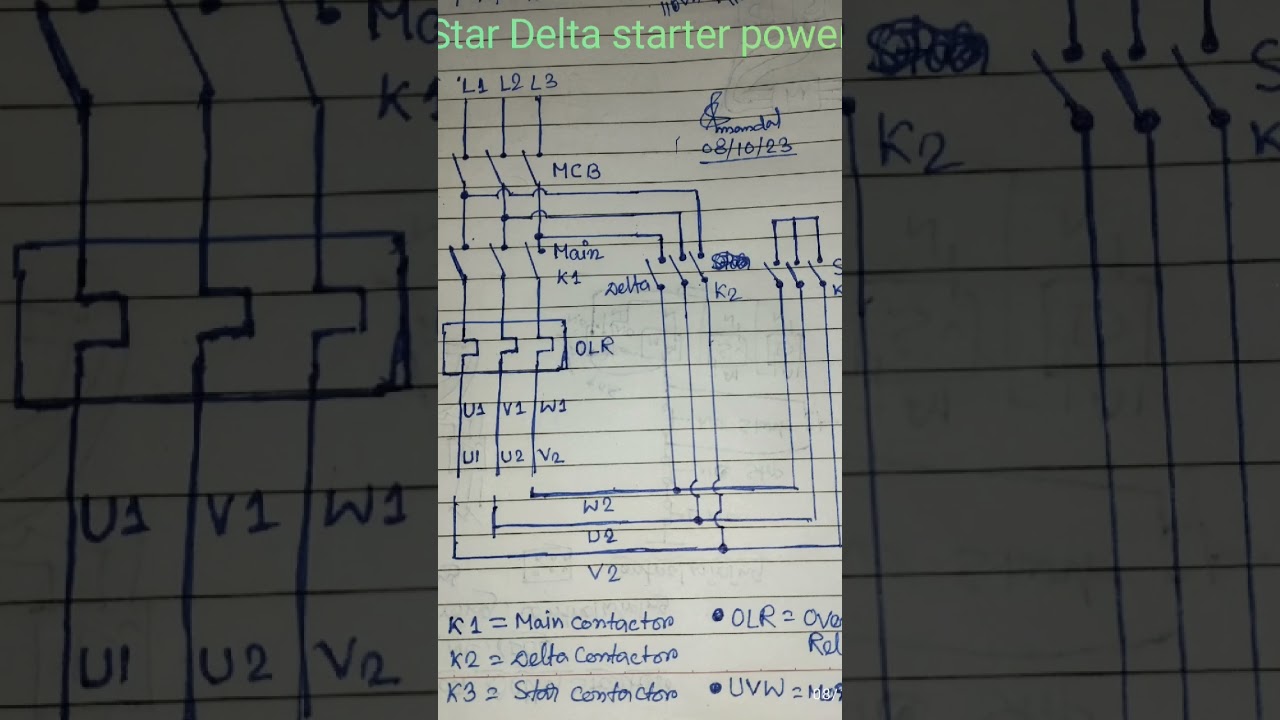 Star Delta starter power
L1 L2 L3
mandal
08/10/23
MCB
Main
K1
Delta
K2
OLR
U1 V1 W1
U1 U2 V2
W2
U2
V2
K1 = Main contactor
K2 = Delta Contactor
K3 = Star contactor
• OLR = Ove
Rel
• UVW = M
K1
U1 V1 W1
U1 U2 V2
K2